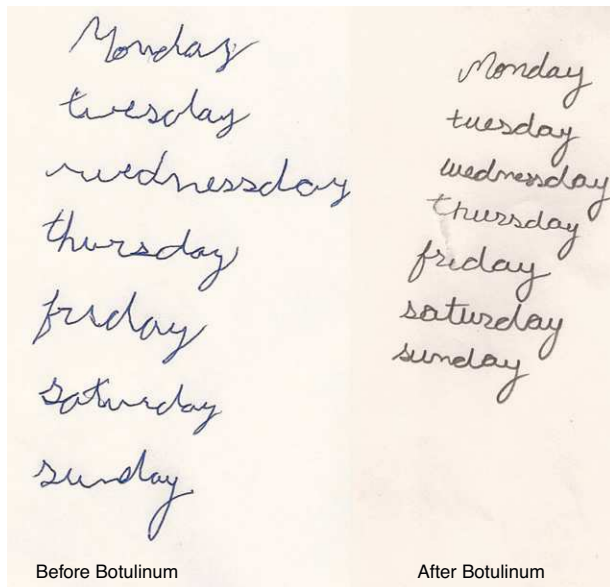 Monday
tuesday
wednessday
thursday
friday
saturday
sunday
Before Botulinum
Monday
tuesday
wednessday
thursday
friday
saturday
sunday
After Botulinum